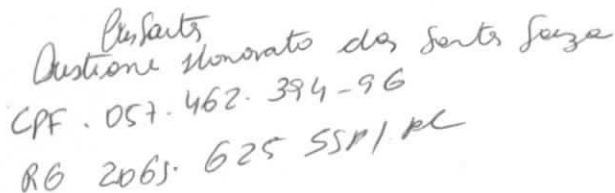 Honorato dos Santos Souza
CPF. 057.462.394-96
RG 2065.625 SSP/